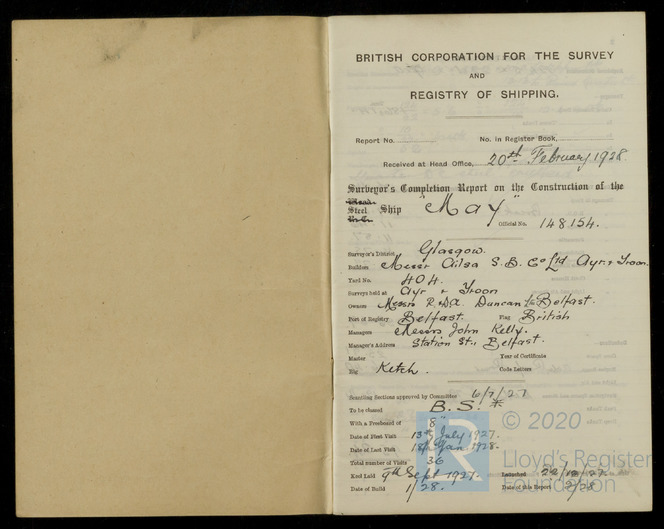 BRITISH CORPORATION FOR THE SURVEY
AND
REGISTRY OF SHIPPING.
Report No. No. in Register Book,
Received at Head Office, 20th February 1928
Surveyor's Completion Report on the Construction of the
Steel Ship "May"
Official No. 148154.
Surveyor's District Glasgow.
Builders Messrs Ailsa S.B. Co Ltd Ayr & Troon.
Yard No. 404.
Surveys held at Ayr & Troon
Owners Messrs R & D.A. Duncan Ld Belfast.
Port of Registry Belfast. Flag British
Managers Messrs John Kelly.
Manager's Address Station St., Belfast.
Master Year of Certificate
Rig Ketch. Code Letters
Scantling Sections approved by Committee 6/7/27
To be classed B.S.*
With a Freeboard of 8"
Date of First Visit 13th July 1927.
Date of Last Visit 18th Jan. 1928.
Total number of Visits 36
Keel Laid 9th Sept 1927. Launched 22/12/27
Date of Build 1/28. Date of this Report 2/28
© 2020
Lloyd's Register
Foundation
LR